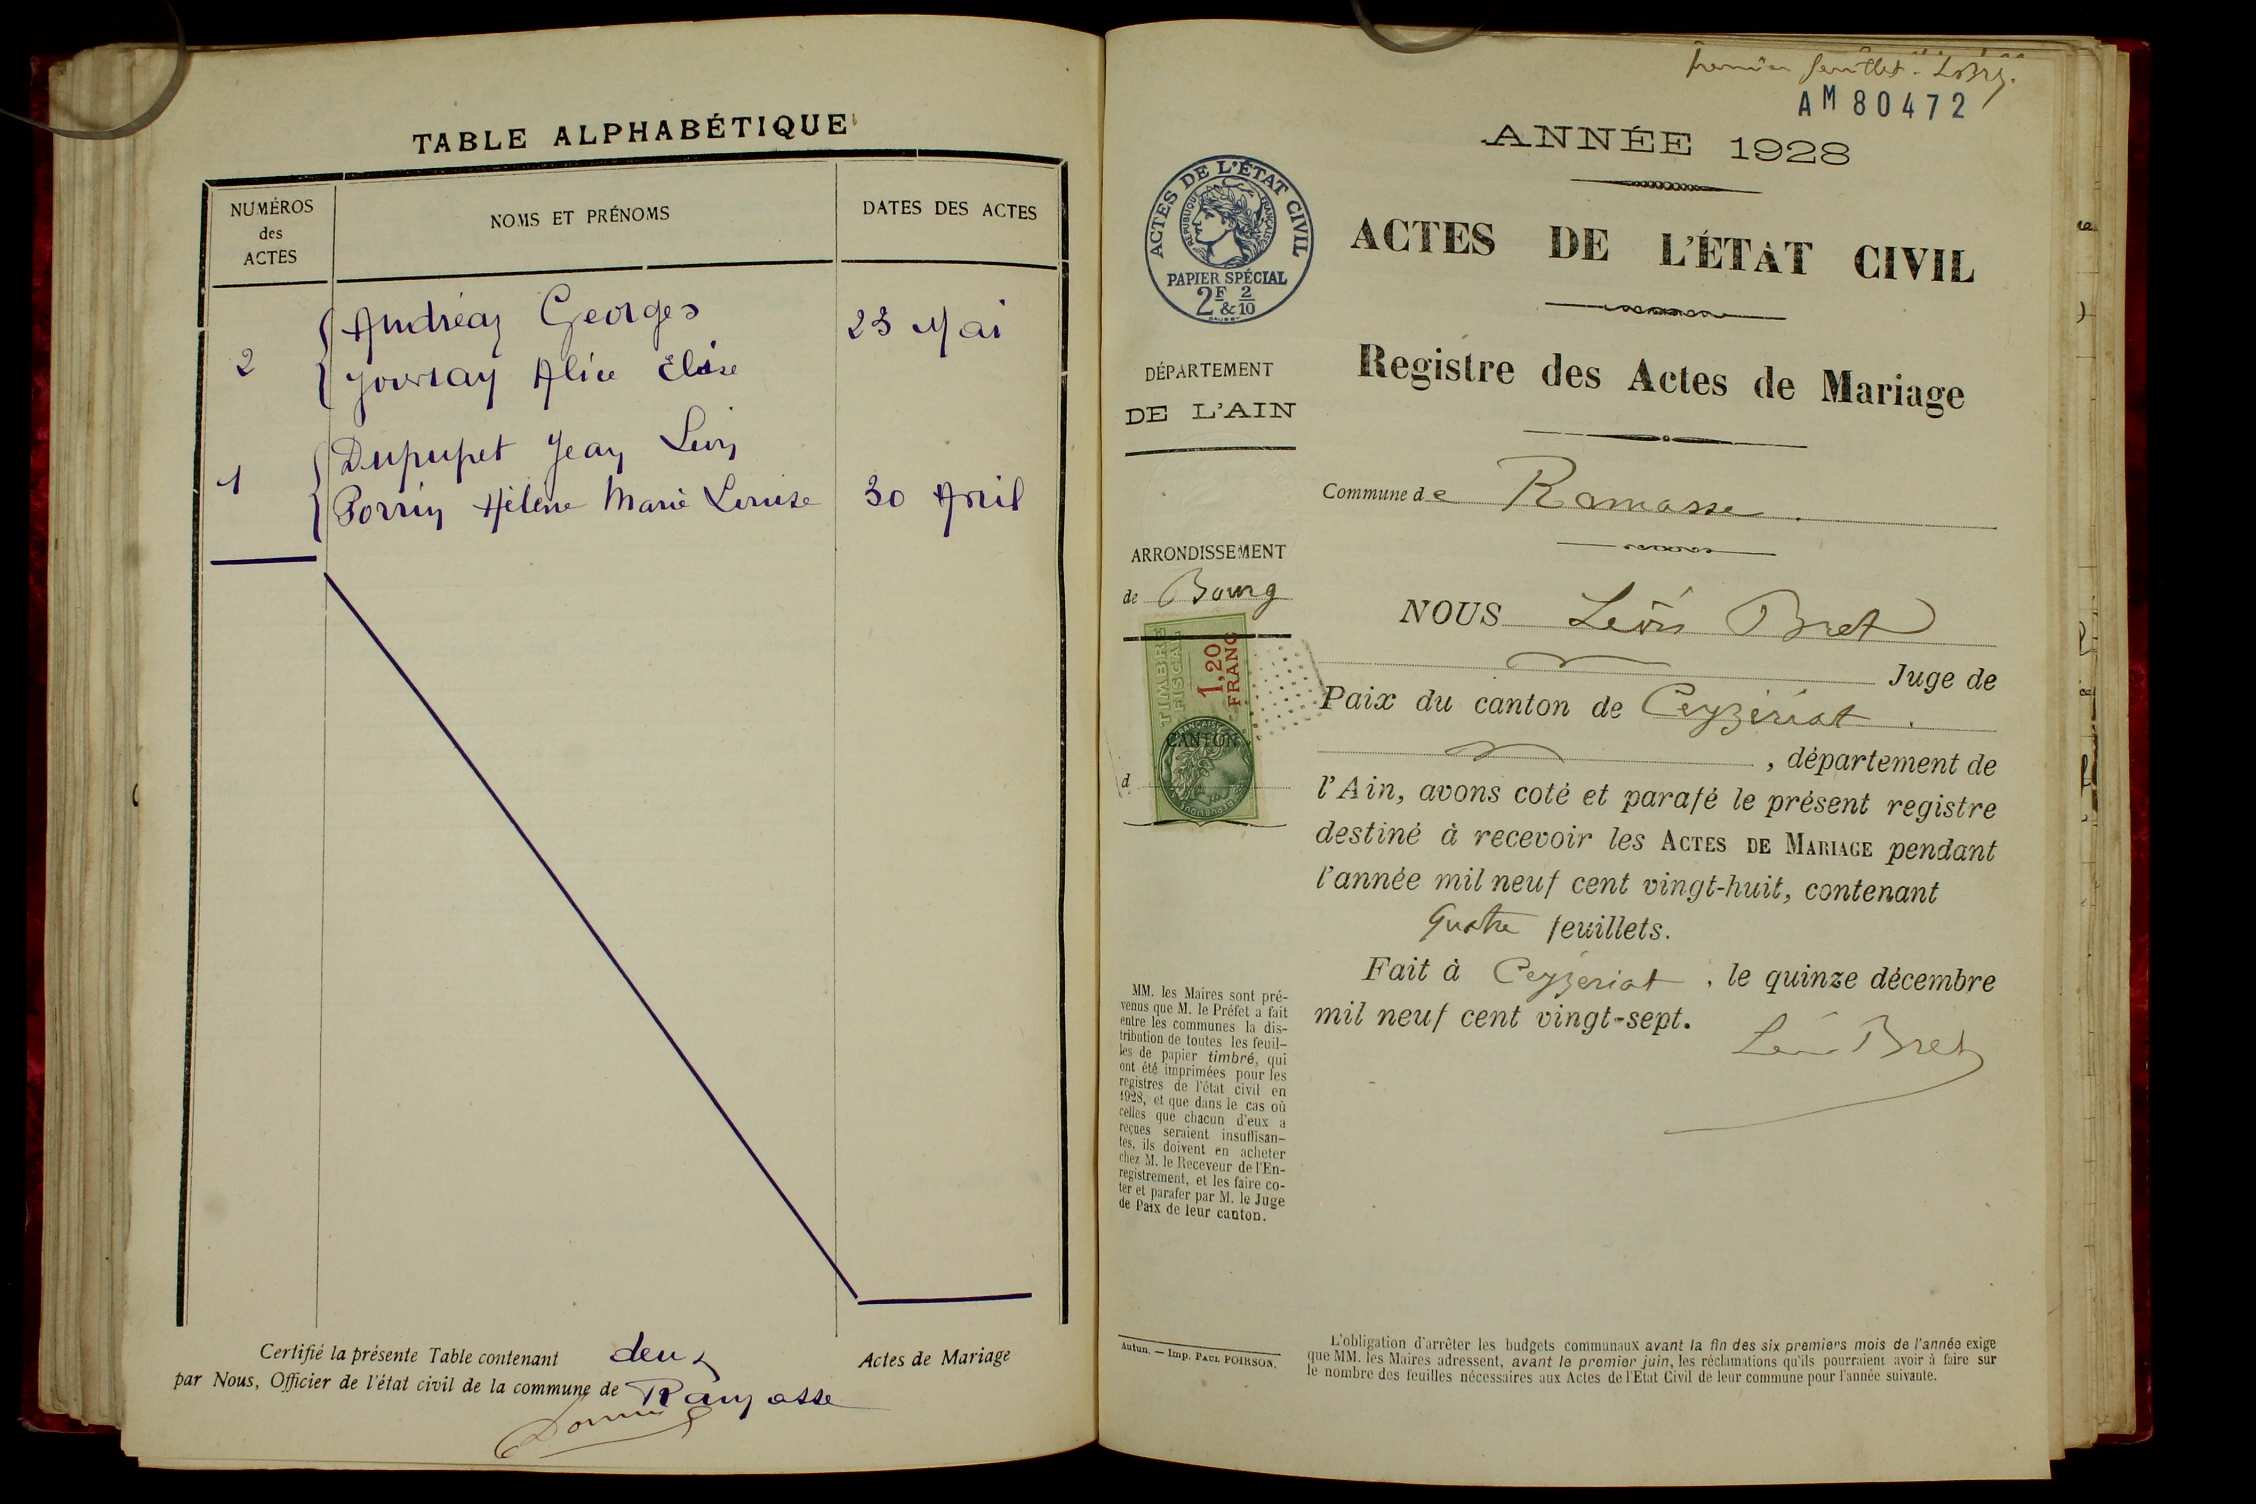 TABLE ALPHABÉTIQUE
NUMÉROS
des
ACTES
NOMS ET PRÉNOMS
DATES DES ACTES
2
Andréay Georges
23 Mai
Alice Elise
1
Dupupet Jean
Perrin Hélène Marie Louise
30 Avril
Certifié la présente Table contenant deux Actes de Mariage
par Nous, Officier de l'état civil de la commune de Ramasse
premier feuillet. LBret
AM 80472
ANNÉE 1928
ACTES DE L'ÉTAT CIVIL
RÉPUBLIQUE FRANÇAISE
PAPIER SPÉCIAL
2F & 2/10
ACTES DE L'ÉTAT CIVIL
Registre des Actes de Mariage
DÉPARTEMENT
DE L'AIN
Commune de Ramasse.
ARRONDISSEMENT
de Bourg
TIMBRE
FISCAL
1,20
FRANC
CANTON
d
NOUS Léon Bret
Juge de
Paix du canton de Ceyzériat.
, département de
l'Ain, avons coté et parafé le présent registre
destiné à recevoir les ACTES DE MARIAGE pendant
l'année mil neuf cent vingt-huit, contenant
quatre feuillets.
Fait à Ceyzériat, le quinze décembre
mil neuf cent vingt-sept.
Léon Bret
MM. les Maires sont pré-
venus que M. le Préfet a fait
entre les communes la dis-
tribution de toutes les feuil-
les de papier timbré, qui
ont été imprimées pour les
registres de l'état civil en
1928, et que dans le cas où
celles que chacun d'eux a
reçues seraient insuffisan-
tes, ils doivent en acheter
chez M. le Receveur de l'En-
registrement, et les faire co-
ter et parafer par M. le Juge
de Paix de leur canton.
Autun. — Imp. PAUL POIRSON.
L'obligation d'arrêter les budgets communaux avant la fin des six premiers mois de l'année exige
que MM. les Maires adressent, avant le premier juin, les réclamations qu'ils pourraient avoir à faire sur
le nombre des feuilles nécessaires aux Actes de l'Etat Civil de leur commune pour l'année suivante.